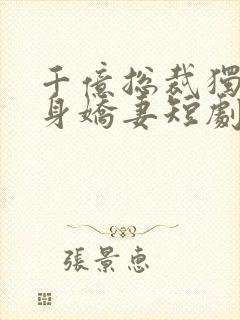 千億總裁獨
身嬌妻短劇
張景恵